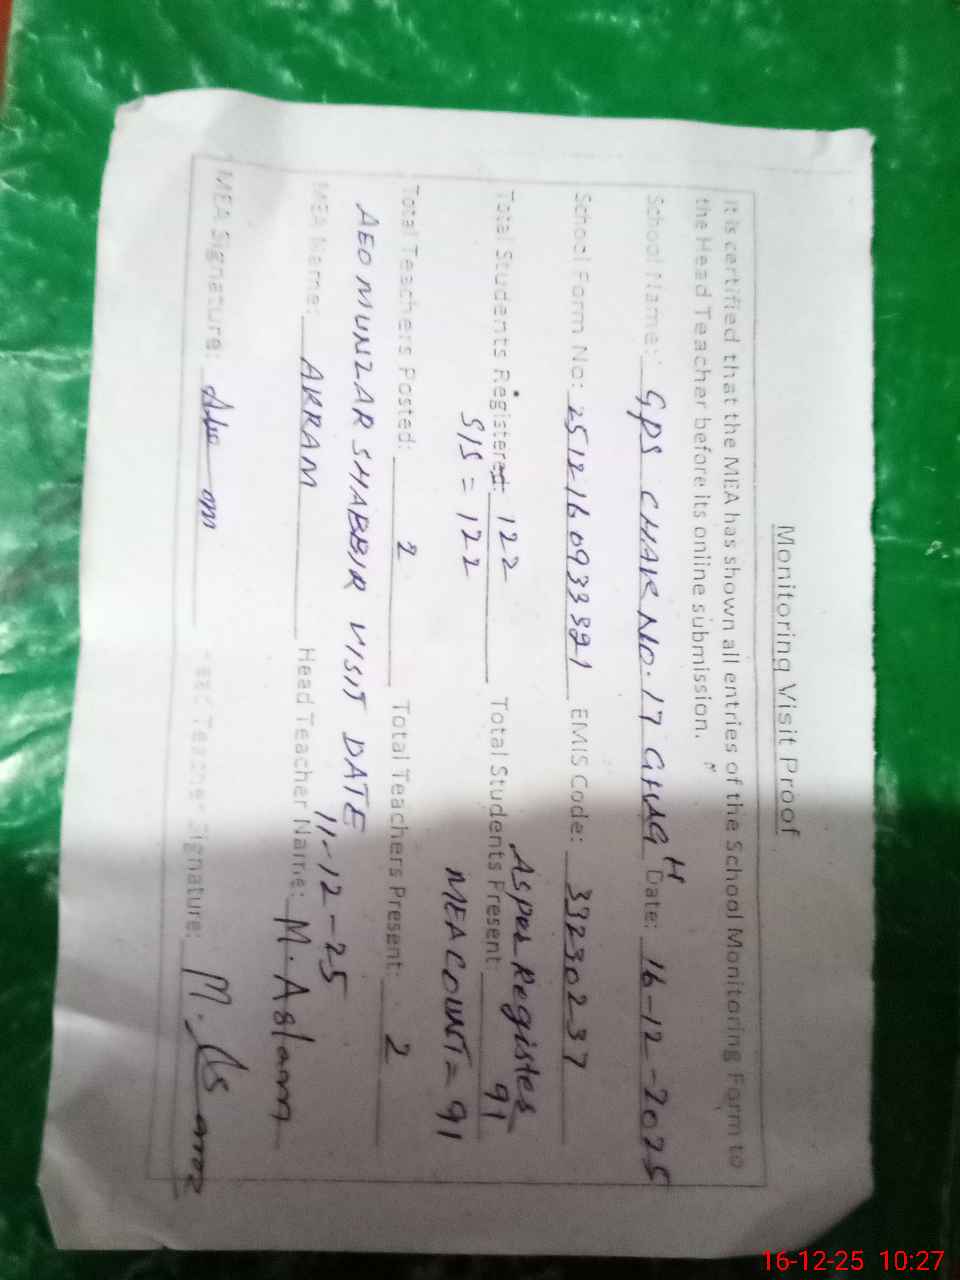 Monitoring Visit Proof
It is certified that the MEA has shown all entries of the School Monitoring Form to
the Head Teacher before its online submission.
School Name: GPS CHAK NO. 17 GHAGH Date: 16-12-2025
School Form No: 2512160933321 EMIS Code: 33230237
As per Register
Total Students Registered: 122 Total Students Present: 91
SIS = 122 MEA COUNT = 91
Total Teachers Posted: 2 Total Teachers Present: 2
AEO MUNZAR SHABBIR VISIT DATE 11-12-25
MEA Name: AKRAM Head Teacher Name: M. Aslam
MEA Signature: Head Teacher Signature: M. Aslam
16-12-25 10:27